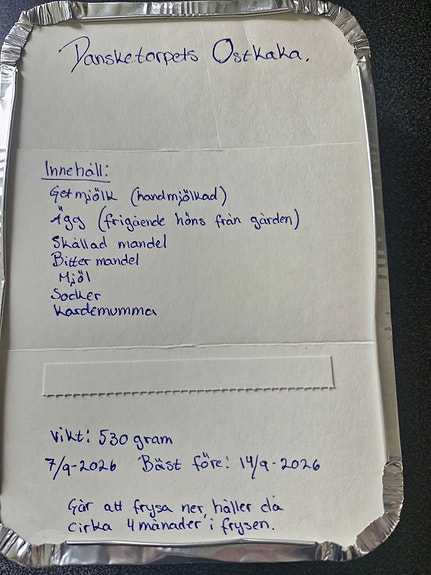 Dansketorpets Ostkaka.
Innehåll:
Getmjölk (handmjölkad)
Ägg (frigående höns från gården)
Skållad mandel
Bitter mandel
Mjöl
Socker
Kardemumma
Vikt: 530 gram
7/9-2026 Bäst före: 14/9-2026
Går att frysa ner, håller då
cirka 4 månader i frysen.